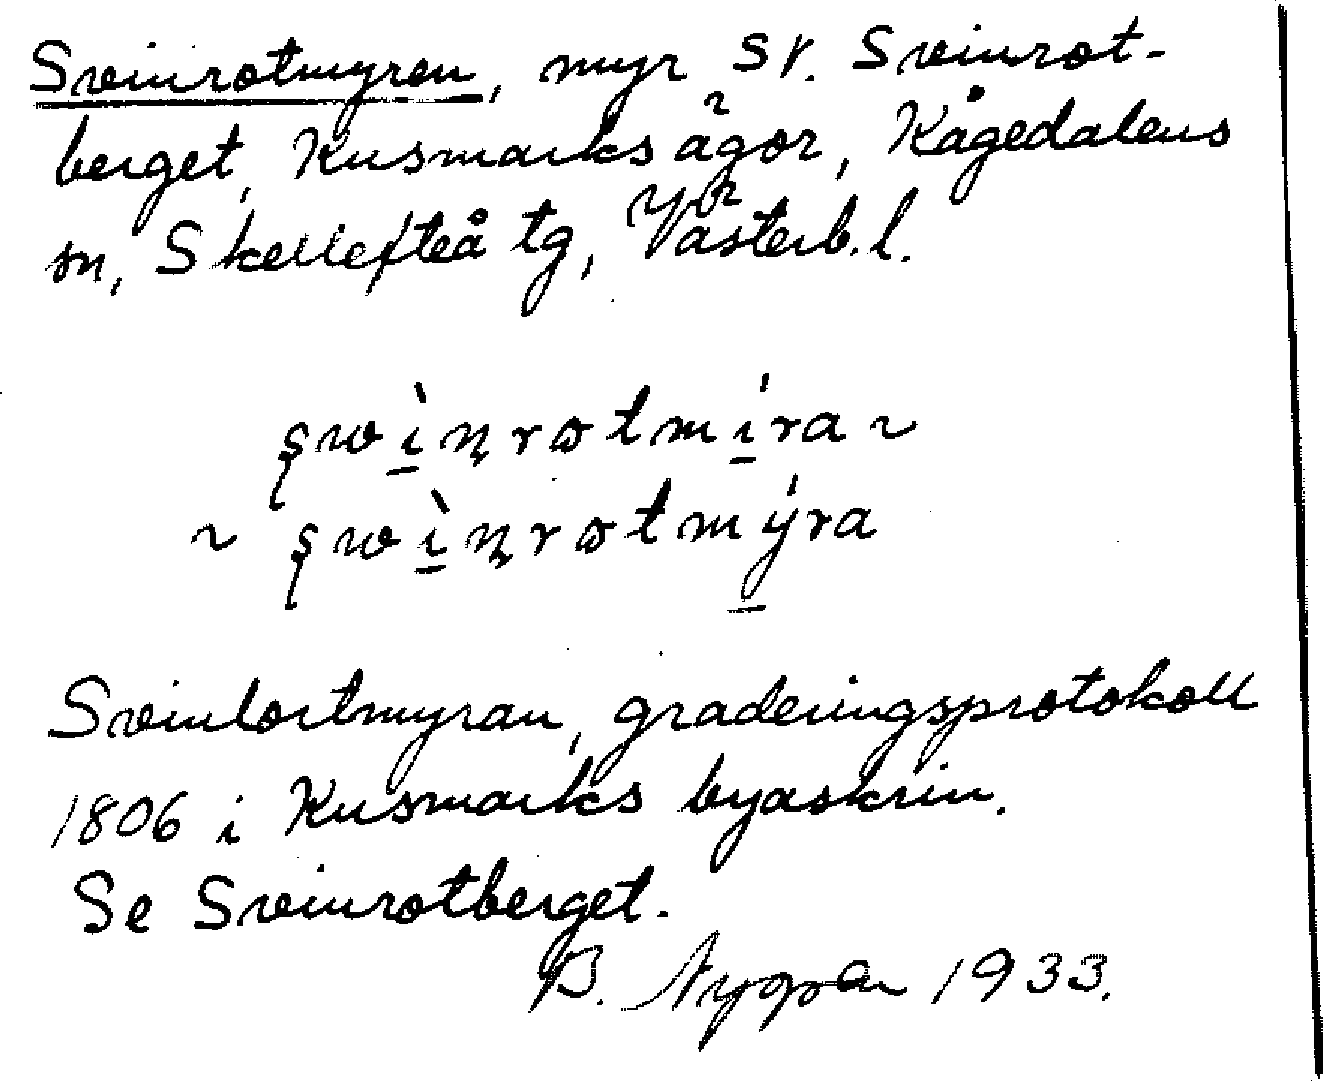 Svinrotmyren, myr SV. Svinrot-
berget, Kusmarks ägor, Kågedalens
sn, Skellefteå tg, Västerb. l.
ʂwìn̡rotmíra ~
~ ʂwìn̡rotmýra
Svinlortmyran, graderingsprotokoll
1806 i Kusmarks byaskrin.
Se Svinrotberget.
B. 1933.